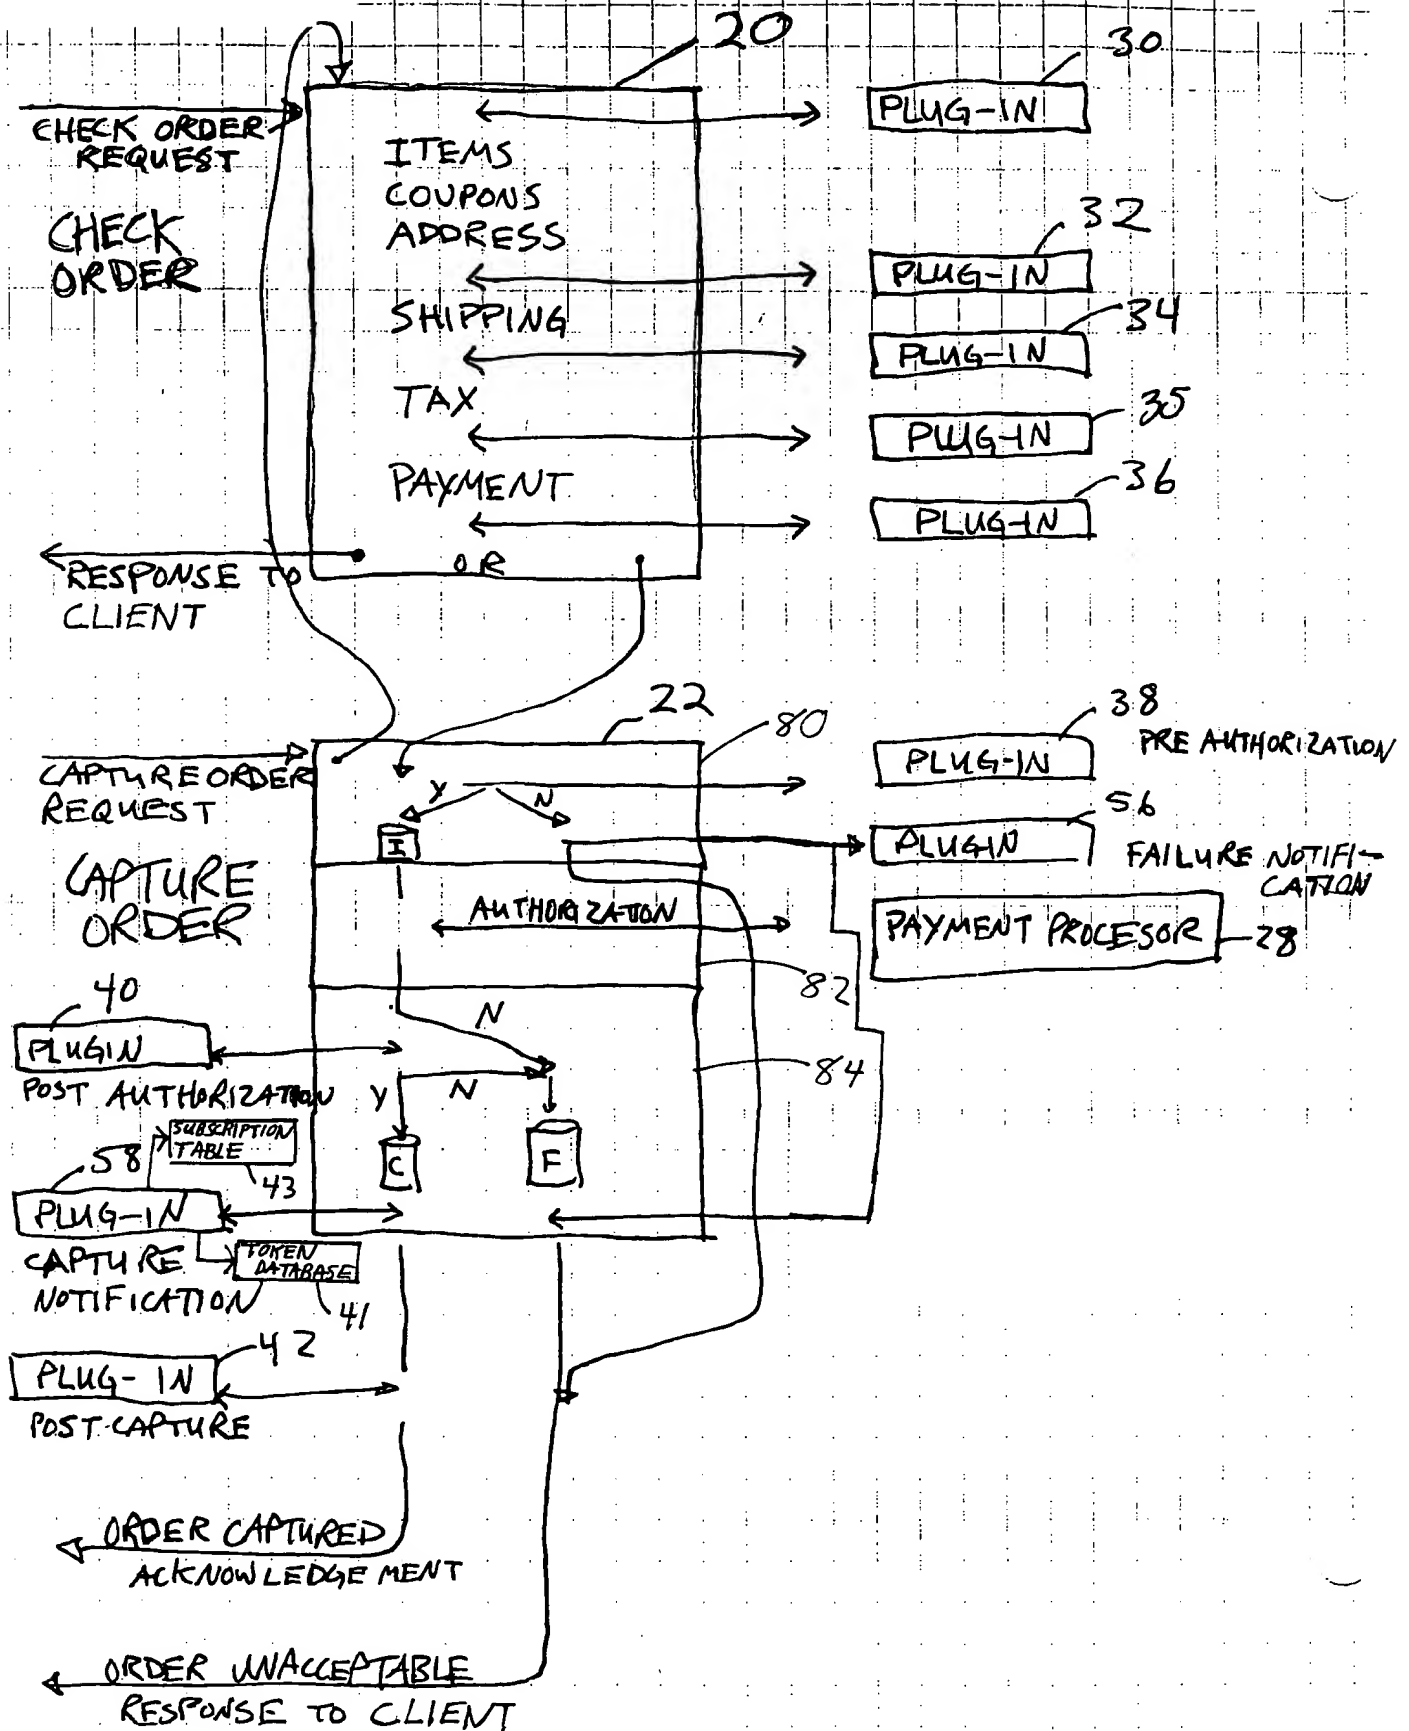 20
30
CHECK ORDER
REQUEST
PLUG-IN
ITEMS
COUPONS
ADDRESS
CHECK
ORDER
32
PLUG-IN
SHIPPING
34
PLUG-IN
TAX
35
PLUG-IN
PAYMENT
36
PLUG-IN
OR
RESPONSE TO
CLIENT
22
80
38
PRE AUTHORIZATION
PLUG-IN
CAPTURE ORDER
REQUEST
Y
N
I
56
PLUGIN
FAILURE NOTIFI-
CATION
CAPTURE
ORDER
AUTHORIZATION
PAYMENT PROCESOR
28
82
40
PLUGIN
POST AUTHORIZATION
N
84
Y
N
SUBSCRIPTION
TABLE
43
C
F
58
PLUG-IN
CAPTURE
NOTIFICATION
TOKEN
DATABASE
41
42
PLUG-IN
POST-CAPTURE
ORDER CAPTURED
ACKNOWLEDGEMENT
ORDER UNACCEPTABLE
RESPONSE TO CLIENT